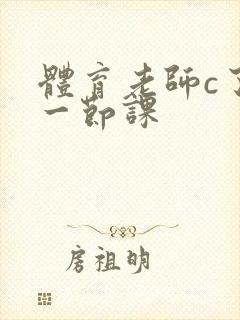 體育老師c了
一節課
房祖明